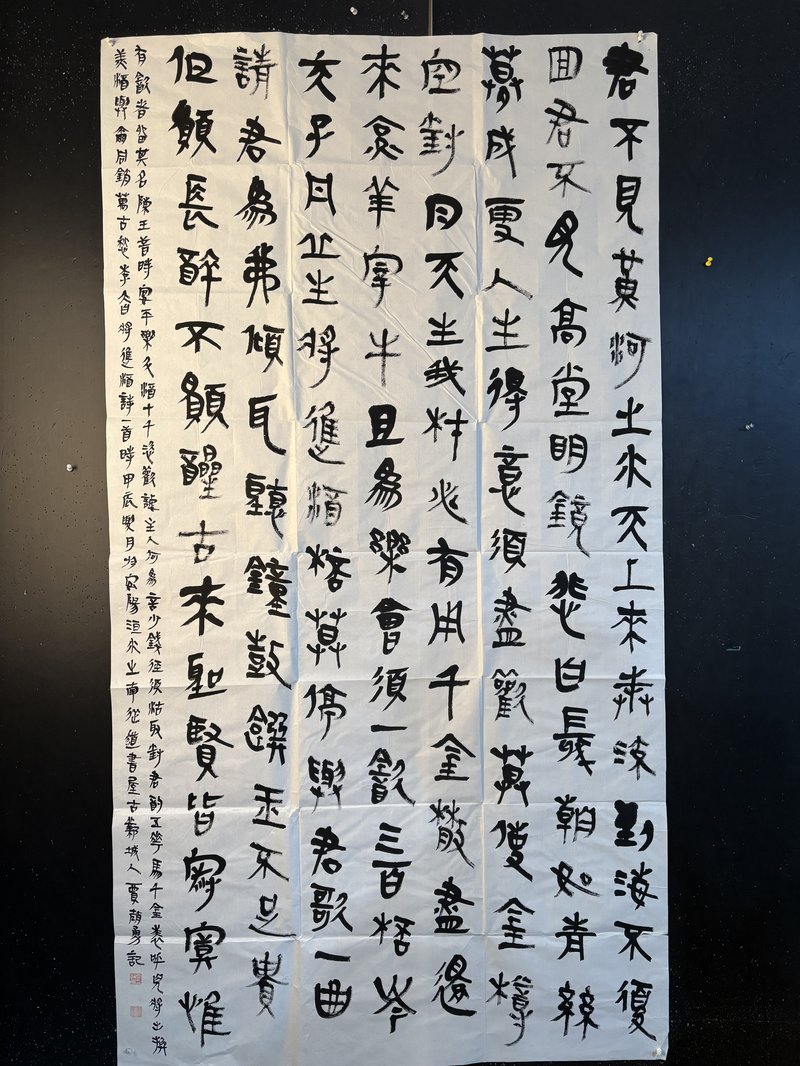 君不見黃河之水天上來奔流到海不復
回君不見高堂明鏡悲白髮朝如青絲
暮成雪人生得意須盡歡莫使金樽
空對月天生我材必有用千金散盡還
來烹羊宰牛且為樂會須一飲三百杯岑
夫子丹丘生將進酒杯莫停與君歌一曲
請君為弗傾耳聽鐘鼓饌玉不足貴
但願長醉不願醒古來聖賢皆寂寞惟
有飲者留其名陳王昔時宴平樂斗酒十千恣歡謔主人何為言少錢徑須沽取對君酌五華馬千金裘呼兒將出換
美酒與爾同銷萬古愁李太白將進酒詩一首時甲辰雙月於安陽洹水之南從道書屋古鄴城人賈勇記